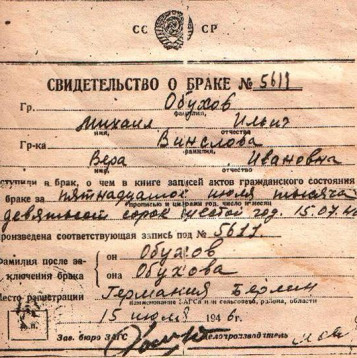 СС СР
СВИДЕТЕЛЬСТВО О БРАКЕ № 5611
Гр. Обухов
фамилия,
Михаил Ильич
имя, отчество
Гр-ка Винслова
фамилия,
Вера Ивановна
имя, отчество
ступили в брак, о чем в книге записей актов гражданского состояния
браке за пятнадцатое июля тысяча
прописью и цифрами год, число и месяц
девятьсот сорок шестой год. 15.07.4
роизведена соответствующая запись под № 5611
Фамилия после за- он Обухов
ключения брака она Обухова
Место регистрации Германия Берлин
наименование ЗАГСа и сельсовета, района, области
15 июля 1946 г.
Зав. бюро ЗАГС Делопроизводитель